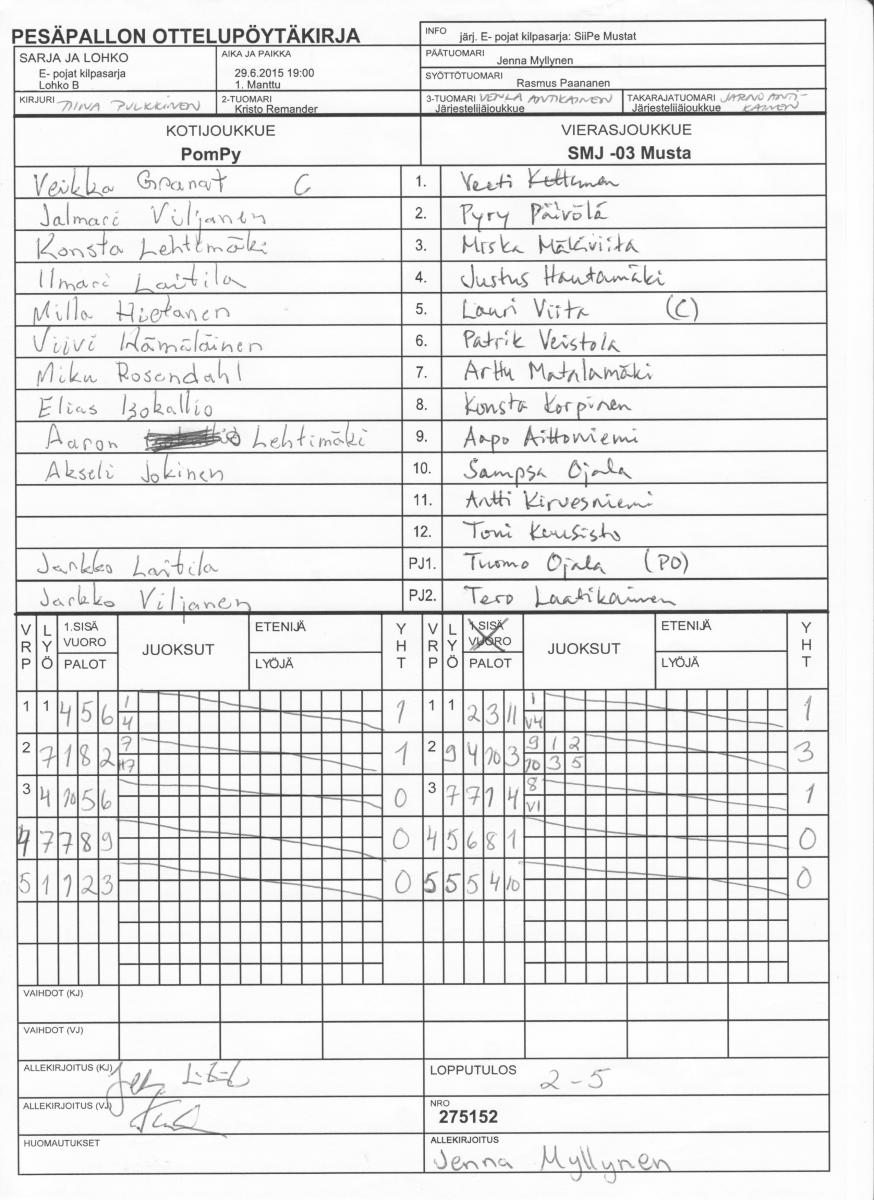 PESÄPALLON OTTELUPÖYTÄKIRJA
INFO järj. E- pojat kilpasarja: SiiPe Mustat
SARJA JA LOHKO
E- pojat kilpasarja
Lohko B
AIKA JA PAIKKA
29.6.2015 19:00
1. Manttu
PÄÄTUOMARI
Jenna Myllynen
SYÖTTÖTUOMARI
Rasmus Paananen
KIRJURI TIINA PULKKINEN
2-TUOMARI
Kristo Remander
3-TUOMARI VENLA ANTIKAINEN
Järjestelijäjoukkue
TAKARAJATUOMARI JARNO ANTI-
Järjestelijäjoukkue KAINEN
KOTIJOUKKUE VIERASJOUKKUE
PomPy SMJ -03 Musta
Veikka Granat C 1. Veeti
Jalmari Viljanen 2. Pyry Päivölä
Konsta Lehtimäki 3. Miska Mäkiviita
Ilmari Laitila 4. Justus Hautamäki
Milla Hietanen 5. Lauri Viita (C)
Viivi Hämäläinen 6. Patrik Veistola
Miku Rosendahl 7. Arttu Matalamäki
Elias Isokallio 8. Konsta Korpinen
Aaron Lehtimäki 9. Aapo Aittoniemi
Akseli Jokinen 10. Sampsa Ojala
11. Antti Kirvesniemi
12. Toni Keusisto
Jarkko Laitila PJ1. Tuomo Ojala (PO)
Jarkko Viljanen PJ2. Tero Laatikainen
VRP LYÖ 1.SISÄ VUORO PALOT JUOKSUT ETENIJÄ LYÖJÄ YHT VRP LYÖ 1.SISÄ VUORO PALOT JUOKSUT ETENIJÄ LYÖJÄ YHT
1 1 4 5 6 1 1 1 1 2 3 11 1 1
4 V4
2 7 1 8 2 7 1 2 9 4 10 3 9 1 2 3
H7 10 3 5
3 4 10 5 6 0 3 7 7 1 4 8 1
V1
4 7 7 8 9 0 4 5 6 8 1 0
5 1 1 2 3 0 5 5 5 4 10 0
VAIHDOT (KJ)
VAIHDOT (VJ)
ALLEKIRJOITUS (KJ)
LOPPUTULOS 2-5
ALLEKIRJOITUS (VJ)
NRO
275152
HUOMAUTUKSET
ALLEKIRJOITUS
Jenna Myllynen